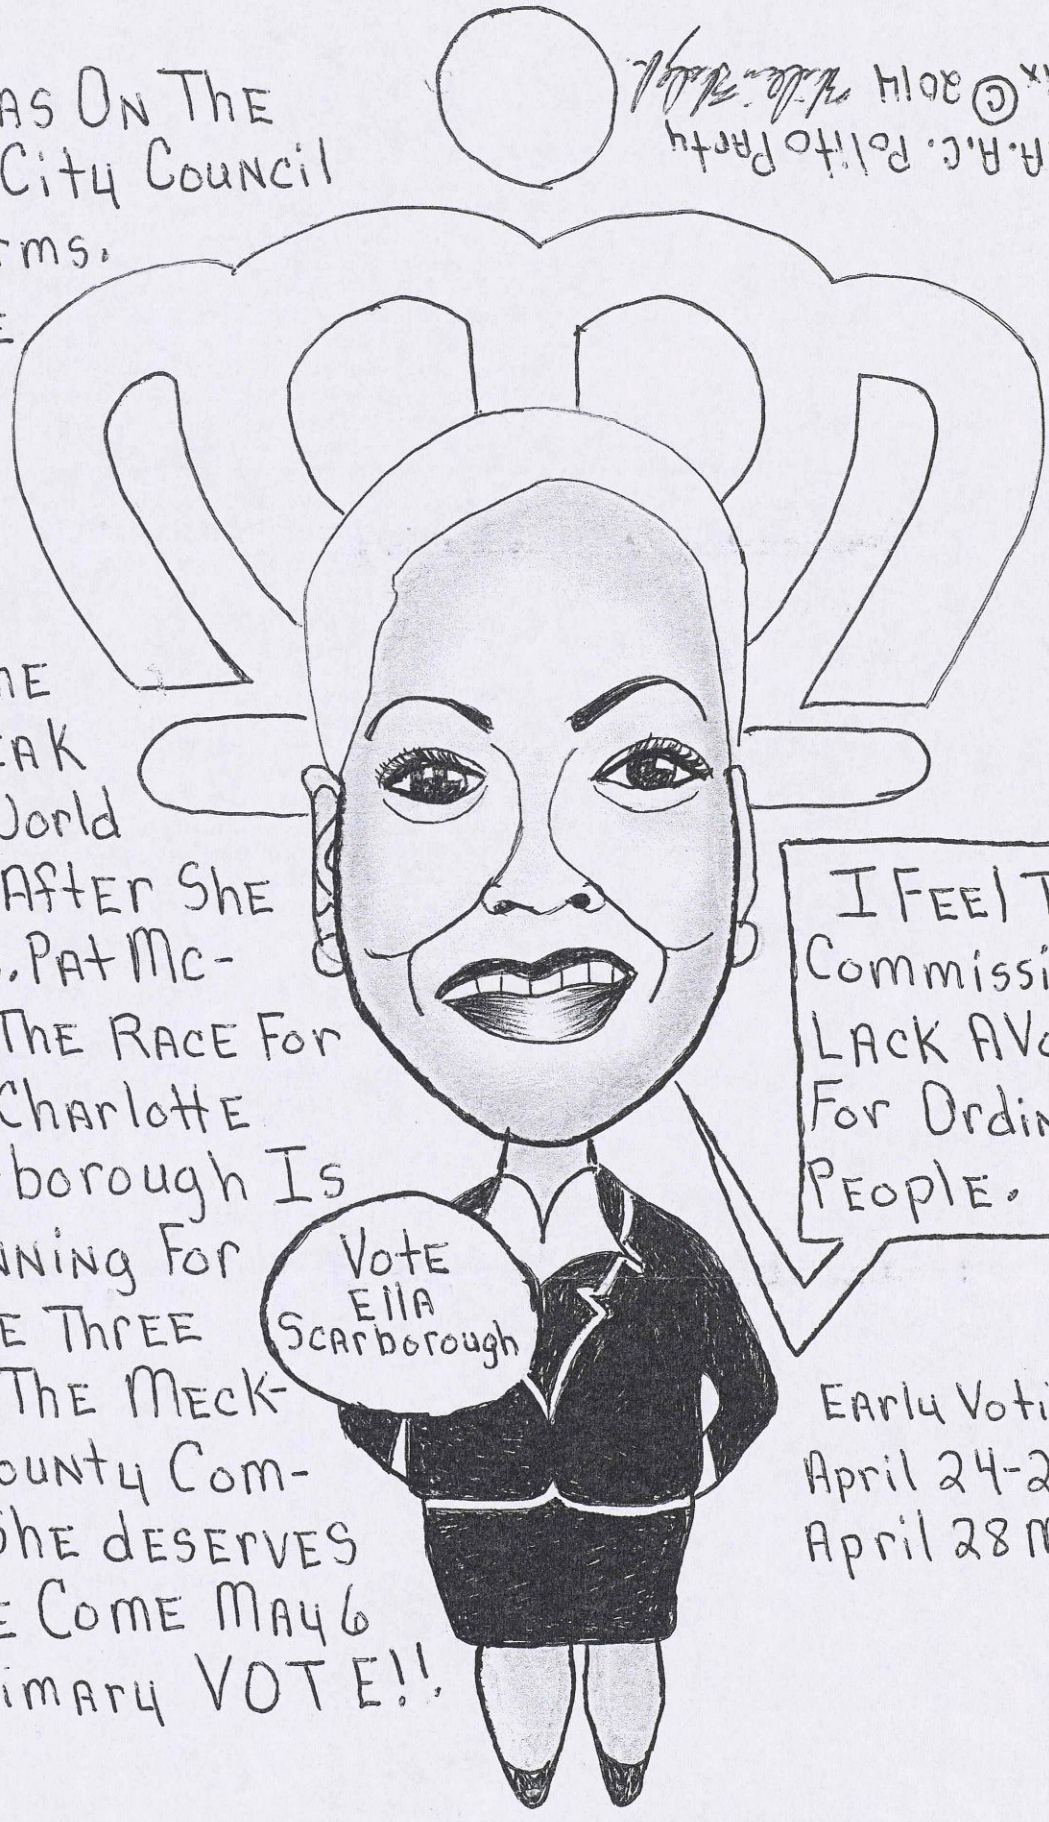 AS ON THE
City Council
rms.
E
A.A.C. Polito Party
© 2014
HE
EAK
World
After She
. Pat Mc-
The Race For
Charlotte
borough Is
nning For
E Three
The Meck-
ounty Com-
She deserves
E Come May 6
imary VOTE!!
Vote
Ella
Scarborough
I Feel T
Commissi
Lack A Vo
For Ordin
People.
Early Voti
April 24-2
April 28 M